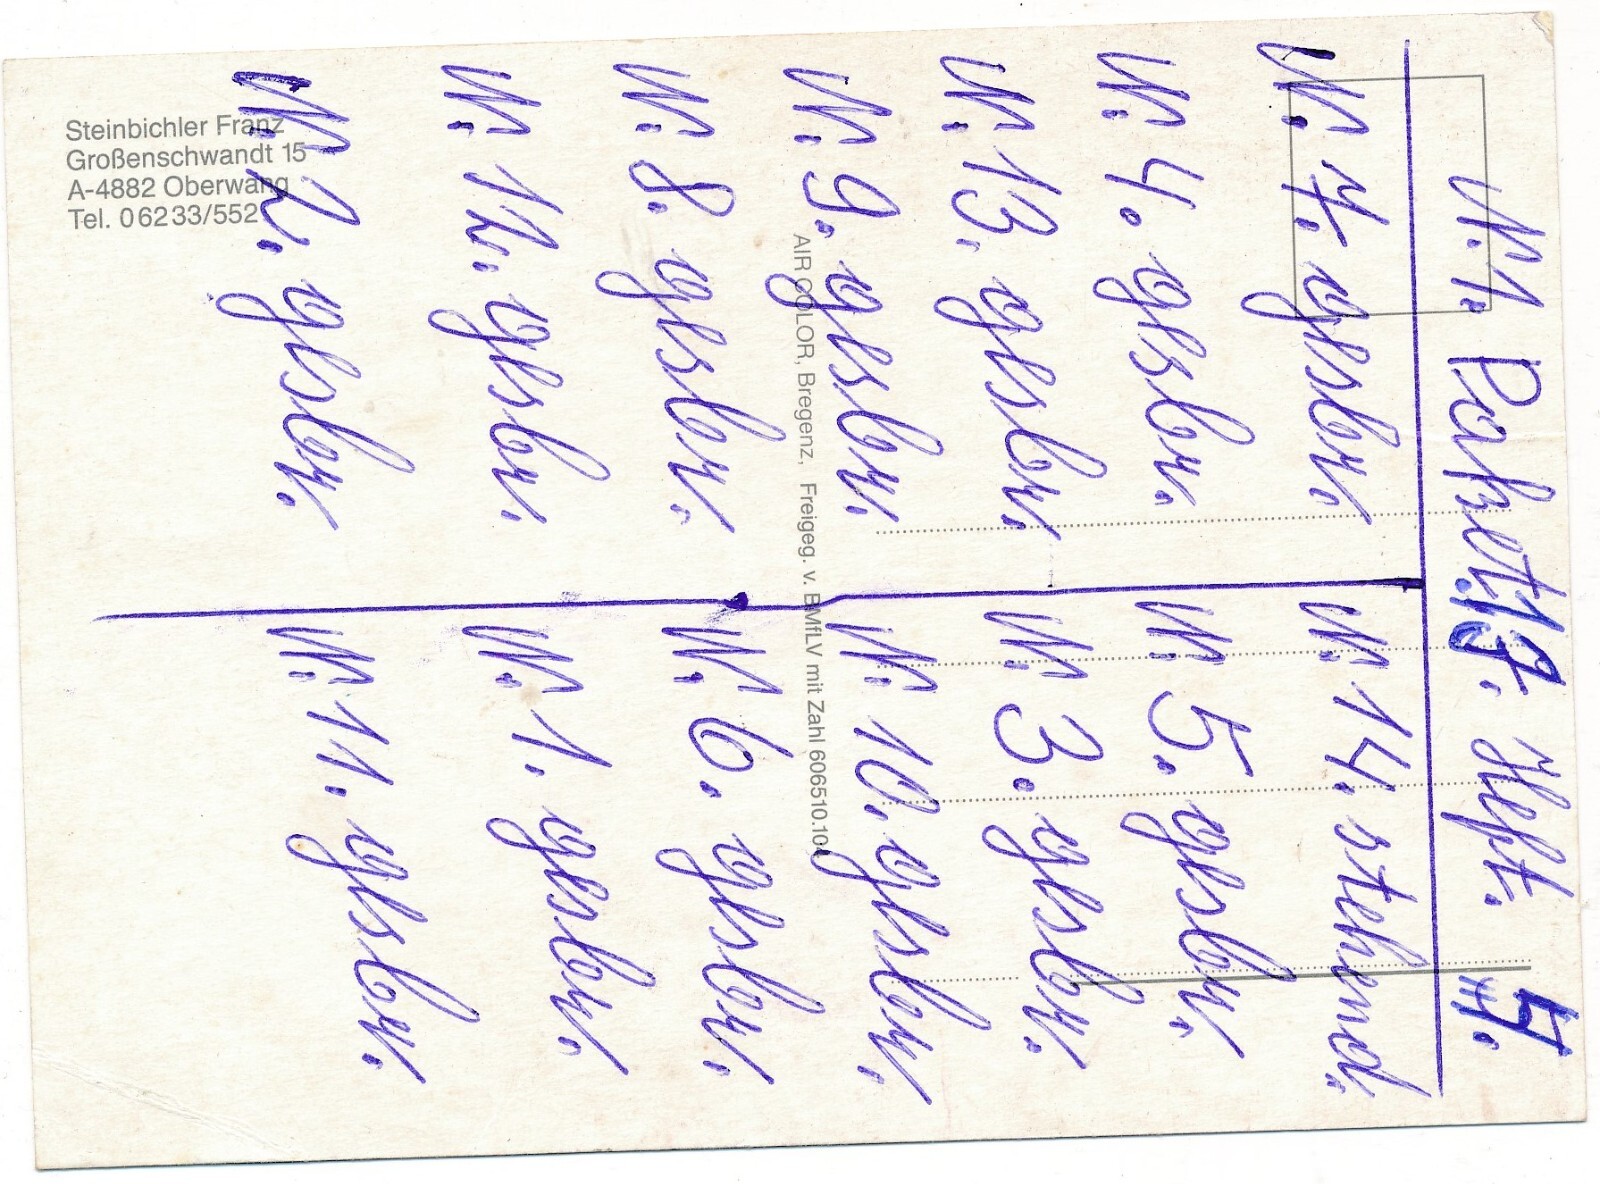 Steinbichler Franz
Großenschwandt 15
A-4882 Oberwang
Tel. 06233/552
AIR COLOR, Bregenz, Freigeg. v. BMfLV mit Zahl 606510.10
N. 1. Paket Heft.
N. 7. glsbr.
N. 4. glsbr.
N. 13. glsbr.
N. 9. glsbr.
N. 8. glsbr.
N. 12. glsbr.
N. 2. glsbr.
N. 14. stehend.
N. 5. glsbr.
N. 3. glsbr.
N. 10. glsbr.
N. 6. glsbr.
N. 1. glsbr.
N. 11. glsbr.